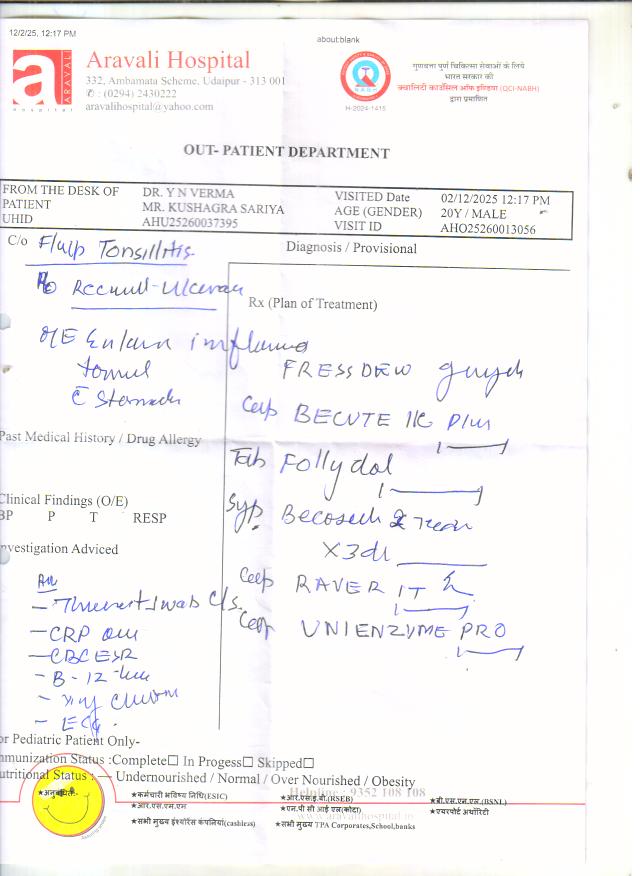 12/2/25, 12:17 PM
about:blank
Aravali Hospital
332, Ambamata Scheme, Udaipur - 313 001
✆ : (0294) 2430222
aravalihospital@yahoo.com
a
ARAVALI
hospital
NABH
H-2024-1415
गुणवत्ता पूर्ण चिकित्सा सेवाओं के लिये
भारत सरकार की
क्वालिटी काउंसिल ऑफ इण्डिया (QCI-NABH)
द्वारा प्रमाणित
OUT- PATIENT DEPARTMENT
FROM THE DESK OF DR. Y N VERMA VISITED Date 02/12/2025 12:17 PM
PATIENT MR. KUSHAGRA SARIYA AGE (GENDER) 20Y / MALE
UHID AHU25260037395 VISIT ID AHO25260013056
C/o F/up Tonsillitis
Diagnosis / Provisional
Rx (Plan of Treatment)
O/E
FRESSDEW
Cap BECUTE Plus
Past Medical History / Drug Allergy
Tab Follydol
Clinical Findings (O/E)
BP P T RESP
Syp.
X3d
nvestigation Adviced
Cap RAVER IT
- Throat Swab C/s.
Cap UNIENZYME PRO
- CRP
- CBC ESR
- B-12
- ECG.
or Pediatric Patient Only-
mmunization Status :Complete☐ In Progess☐ Skipped☐
utritional Status : — Undernourished / Normal / Over Nourished / Obesity
Helpline : 9352 108 108
★अनुबंधित:-
★कर्मचारी भविष्य निधि(ESIC) ★आर.एस.इ.बी.(RSEB) ★बी.एस.एन.एल.(BSNL)
★आर.एस.एम.एम ★एन.पी सी आई एल(कोटा) ★एयरपोर्ट अथॉरिटी
www.aravalihospital.in
★सभी मुख्य इंश्योरेंस कंपनियां(cashless) ★सभी मुख्य TPA Corporates,School,banks